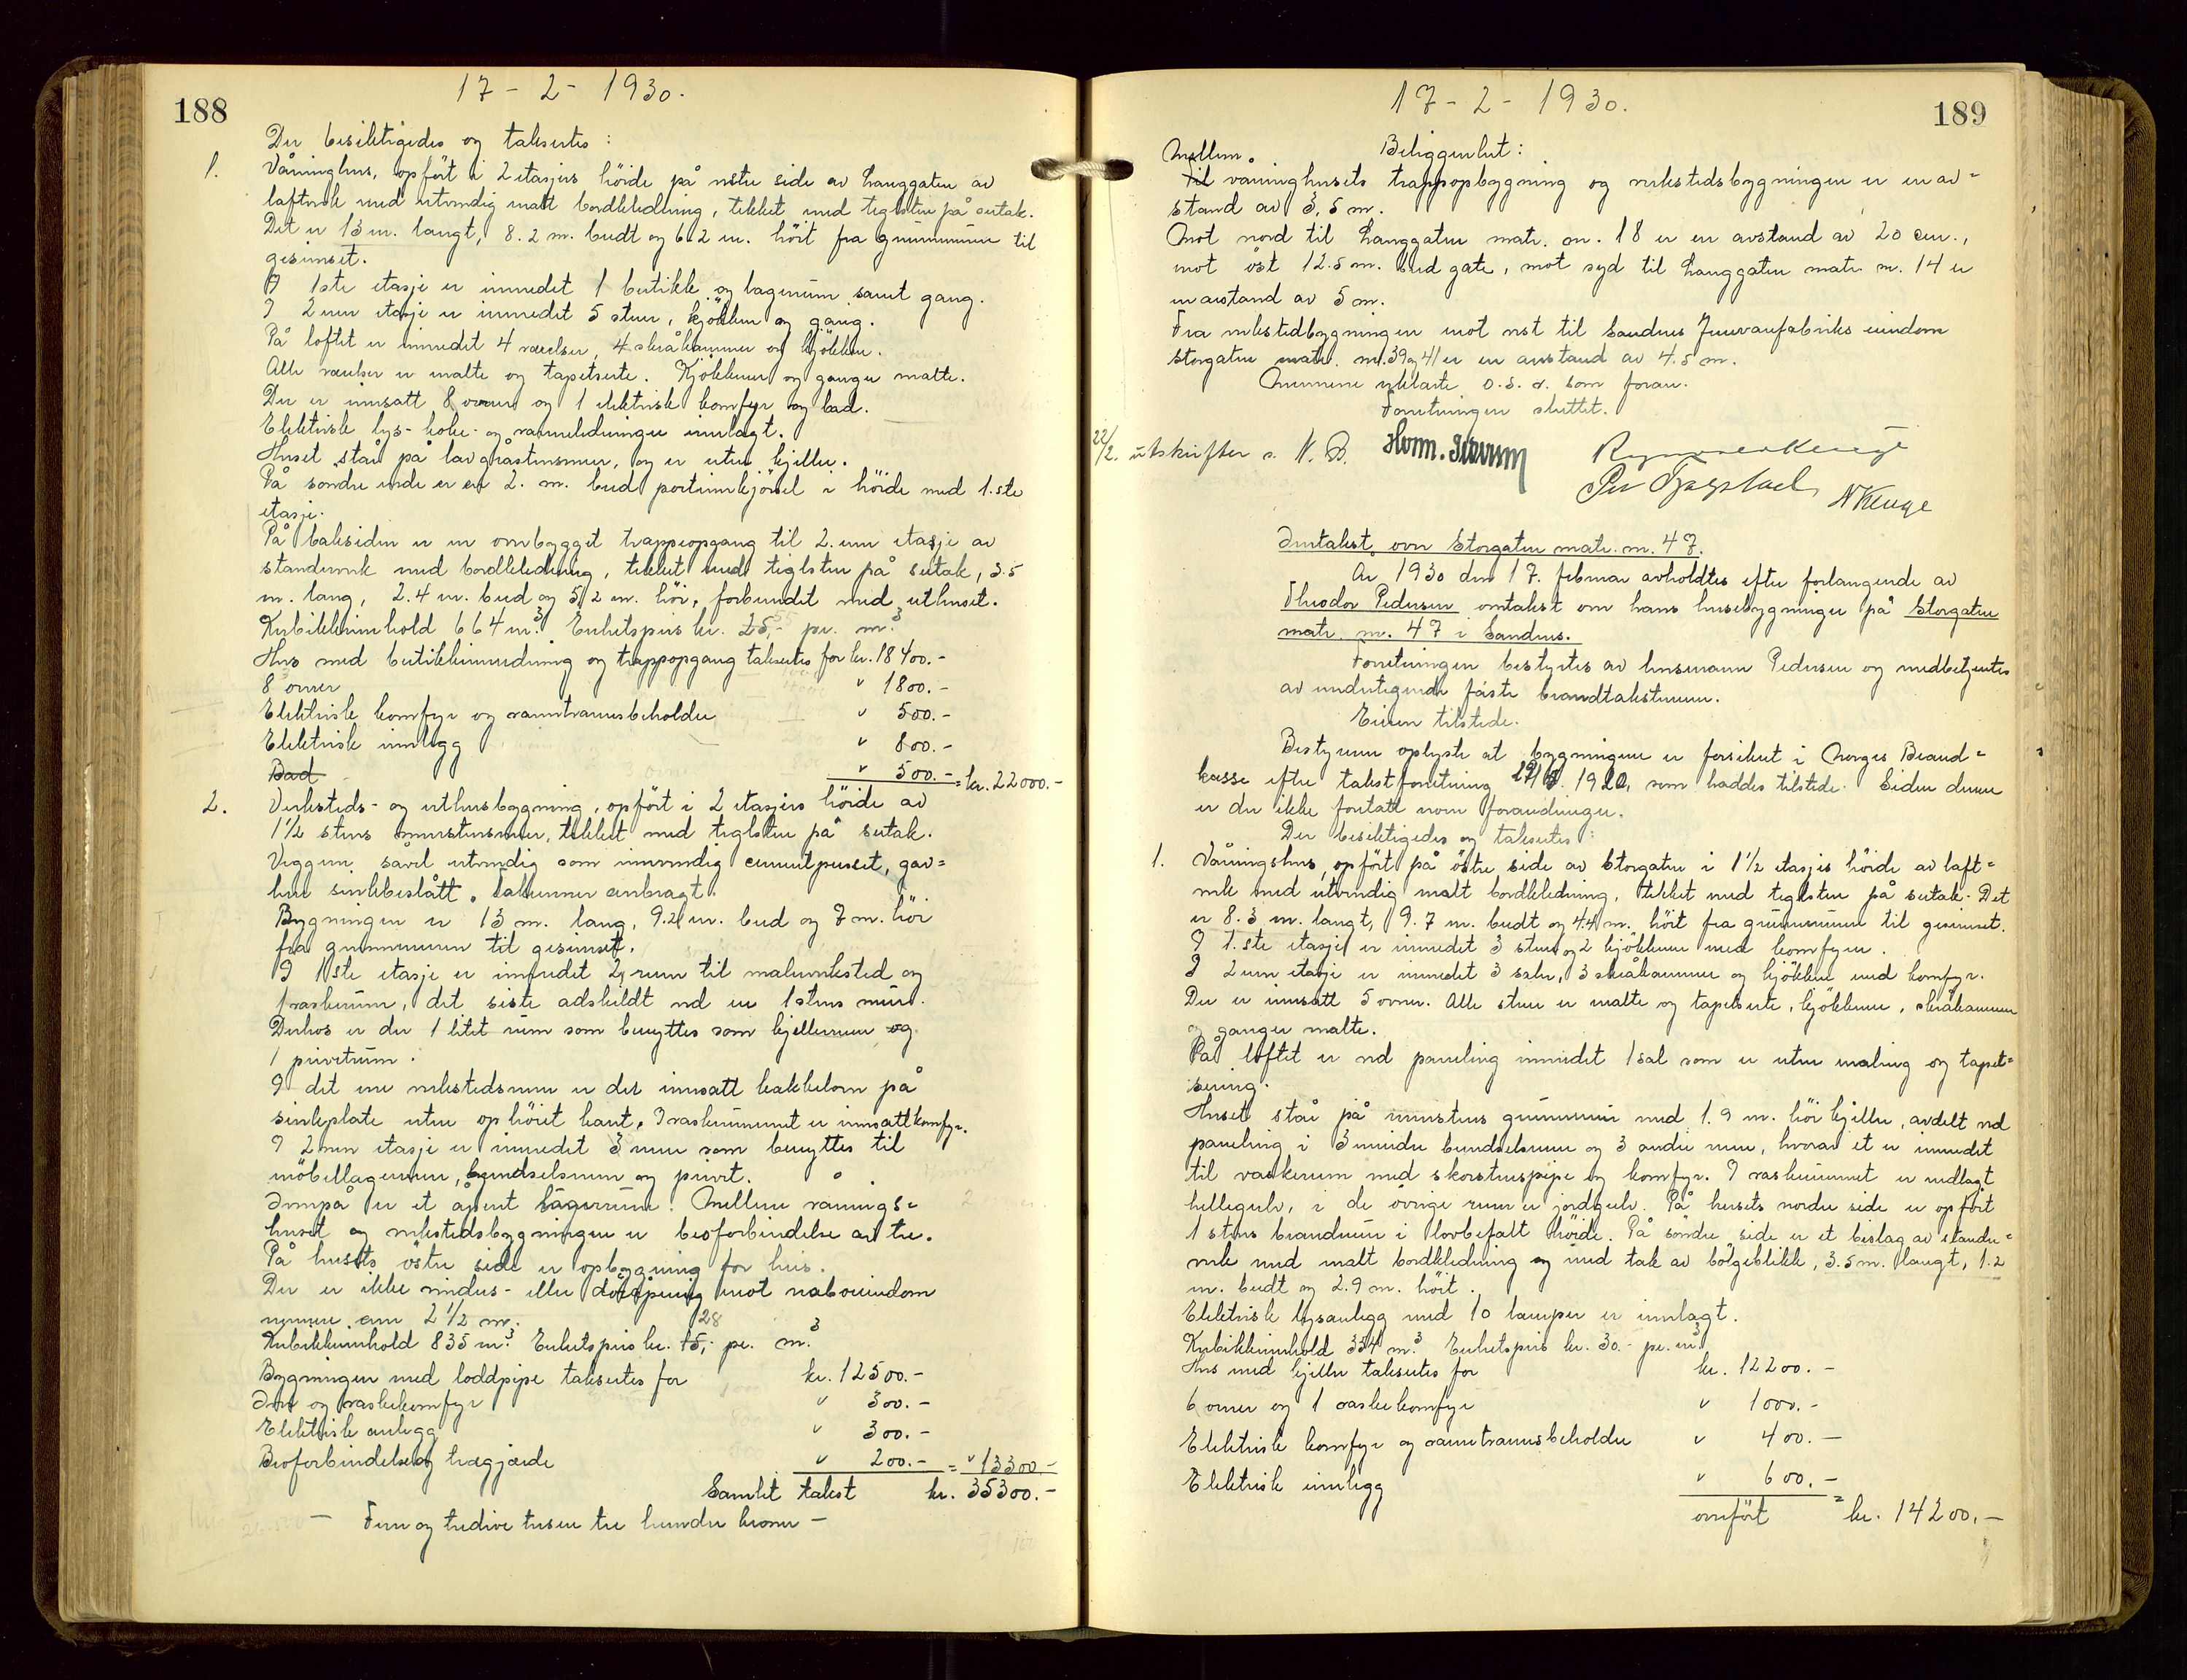 188
17 - 2 - 1930.
Der besiktigedes og takseres:
1. Våninghus, opført i 2 etasjers höide på vestre side av Langgaten av
laftverk med utvendig malt bordkledning, tekket med teglsten på sutak.
Det er 13 m. langt, 8.2 m. bredt og 6.2 m. höit fra grunnmuren til
gesimset.
I 1ste etasje er innredet 1 butikk og lagerrum samt gang.
I 2nen etasje er innredet 5 stuer, kjökken og gang.
På loftet er innredet 4 værelser, 4 skråkammer og kjökken.
Alle værelser er malte og tapetserte. Kjökkener og ganger malte.
Der er innsatt 8 ovner og 1 elektrisk komfyr og bad.
Elektrisk lys- koke- og varmeledninger innlagt.
Huset står på lav gråstensmur, og er uten kjeller.
På söndre ende er en 2. m. bred portinnkjörsel i höide med 1.ste
etasje.
På baksiden er en ombygget trappeopgang til 2.nen etasje av
stenderverk med bordkledning, tekket med teglsten på sutak, 3.5
m. lang, 2.4 m. bred og 5.2 m. höi, forbundet med uthuset.
Kubikkinnhold 664 m³. Enhetspris kr. 25,- pr. m³.
Hus med butikkinnredning og trappopgang takseres for kr. 18400.-
8 ovner " 1800.-
Elektrisk komfyr og varmtvannsbeholder " 500.-
Elektrisk innlegg " 800.-
Bad " 500.- = kr. 22000.-
2. Verksteds- og uthusbygning, opført i 2 etasjers höide av
1½ stens murstensmur, tekket med teglsten på sutak.
Veggene såvel utvendig som innvendig cementpusset, gav=
lene sinkbeslått. Takrenner anbragt.
Bygningen er 13 m. lang, 9.2 m. bred og 7 m. höi
fra grunnmuren til gesimset.
I 1ste etasje er innredet 2 rum til malerverksted og
1 vaskerum, det siste adskildt ved en 1 stens mur.
Derhos er der 1 litet rum som benyttes som kjellerrum og
1 privetrum.
I det ene verkstedsrum er det innsatt kakkelovn på
sinkplate uten ophöiet kant. I vaskerummet er innsatt komfyr.
I 2nen etasje er innredet 3 rum som benyttes til
möbellagerrum, brendselsrum og privet.
Ovenpå er et åpent lagerrum. Mellem vånings=
huset og verkstedsbygningen er broforbindelse av tre.
På husets östre side er opbygning for heis.
Der er ikke vindus- eller döråpning mot naboeiendom
nærmere enn 2½ m.
28
Kubikkinnhold 835 m³. Enhetspris kr. 15,- pr. m³
Bygningen med loddpipe takseres for kr. 12500.-
Ovn og vaskekomfyr " 300.-
Elektrisk anlegg " 300.-
Broforbindelse og tregjærde " 200.- = " 13300.-
Samlet takst kr. 35300.-
— Fem og tredive tusen tre hundre kroner —
17 - 2 - 1930.
189
Beliggenhet:
Mellem
Til våninghusets trappopbygning og verkstedsbygningen er en av=
stand av 3,5 m.
Mot nord til Langgaten matr. nr. 18 er en avstand av 20 cm.,
mot öst 12.5 m. bred gate, mot syd til Langgaten matr. nr. 14 er
en avstand av 5 m.
Fra verkstedbygningen mot vest til Sandnes Jernvarefabriks eiendom
Storgaten matr. nr. 39 og 41 er en avstand av 4.5 m.
Mennene erklærte o.s.v. som foran.
Forretningen sluttet.
22/2. utskrifter s. N. B. Homm. Pedersen
N Kluge
Omtakst over Storgaten matr. nr. 47.
År 1930 den 17. februar avholdtes efter forlangende av
Theodor Pedersen omtakst over hans husebygninger på Storgaten
matr. nr. 47 i Sandnes.
Forretningen bestyrtes av lensmann Pedersen og medbetjentes
av undertegnede faste brandtakstmenn.
Eieren tilstede.
Bestyreren oplyste at bygningene er forsikret i Norges Brand=
kasse efter takstforretning 1920, som haddes tilstede. Siden denne
er der ikke foretatt noen forandringer.
Der besiktigedes og takseres:
1. Våningshus, opført på östre side av Storgaten i 1½ etasjes höide av laft=
verk med utvendig malt bordkledning, tekket med teglsten på sutak. Det
er 8.3 m. langt, 9.7 m. bredt og 4.4 m. höit fra grunnmuren til gesimset.
I 1.ste etasje er innredet 3 stuer og 2 kjökkener med komfyrer.
I 2nen etasje er innredet 3 saler, 3 skråkammer og kjökken med komfyr.
Der er innsatt 5 ovner. Alle stuer er malte og tapetserte, kjökkener, skråkammer
og ganger malte.
På loftet er ved paneling innredet 1 sal som er uten maling og tapet=
sering.
Huset står på murstens grunnmur med 1.9 m. höi kjeller, avdelt ved
paneling i 3 mindre brendselsrum og 3 andre rum, hvorav et er innredet
til vaskerum med skorstenspipe og komfyr. I vaskerummet er nedlagt
hellegulv, i de övrige rum er jordgulv. På husets nordre side er opfört
1 stens brandmur i lovbefalt höide. På söndre side er et bislag av stender=
verk med malt bordkledning og med tak av bölgeblikk, 3.5 m. langt, 1.2
m. bredt og 2.9 m. höit.
Elektrisk lysanlegg med 10 lamper er innlagt.
Kubikkinnhold 354 m³. Enhetspris kr. 30.- pr. m³
Hus med kjeller takseres for kr. 12200.-
6 ovner og 1 vaskekomfyr " 1000.-
Elektrisk komfyr og varmtvannsbeholder " 400.-
Elektrisk innlegg " 600.-
overfört = kr. 14200.-